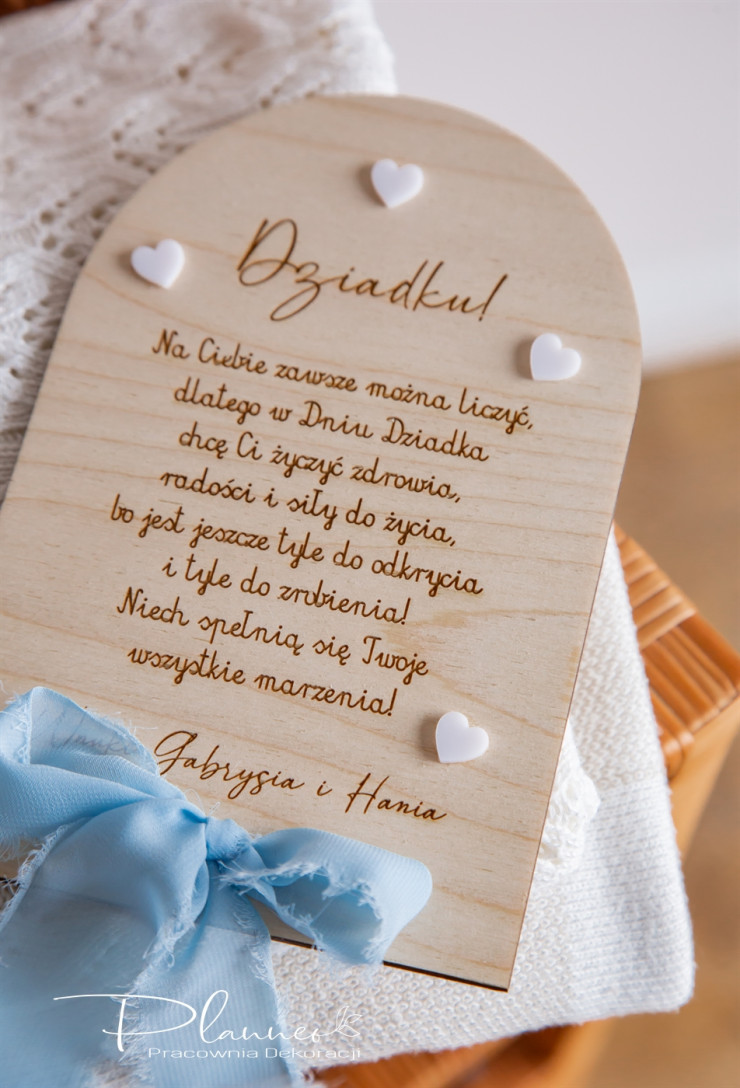 Dziadku!
Na Ciebie zawsze można liczyć,
dlatego w Dniu Dziadka
chcę Ci życzyć zdrowia,
radości i siły do życia,
bo jest jeszcze tyle do odkrycia
i tyle do zrobienia!
Niech spełnią się Twoje
wszystkie marzenia!
Gabrysia i Hania
Planner
Pracownia Dekoracji